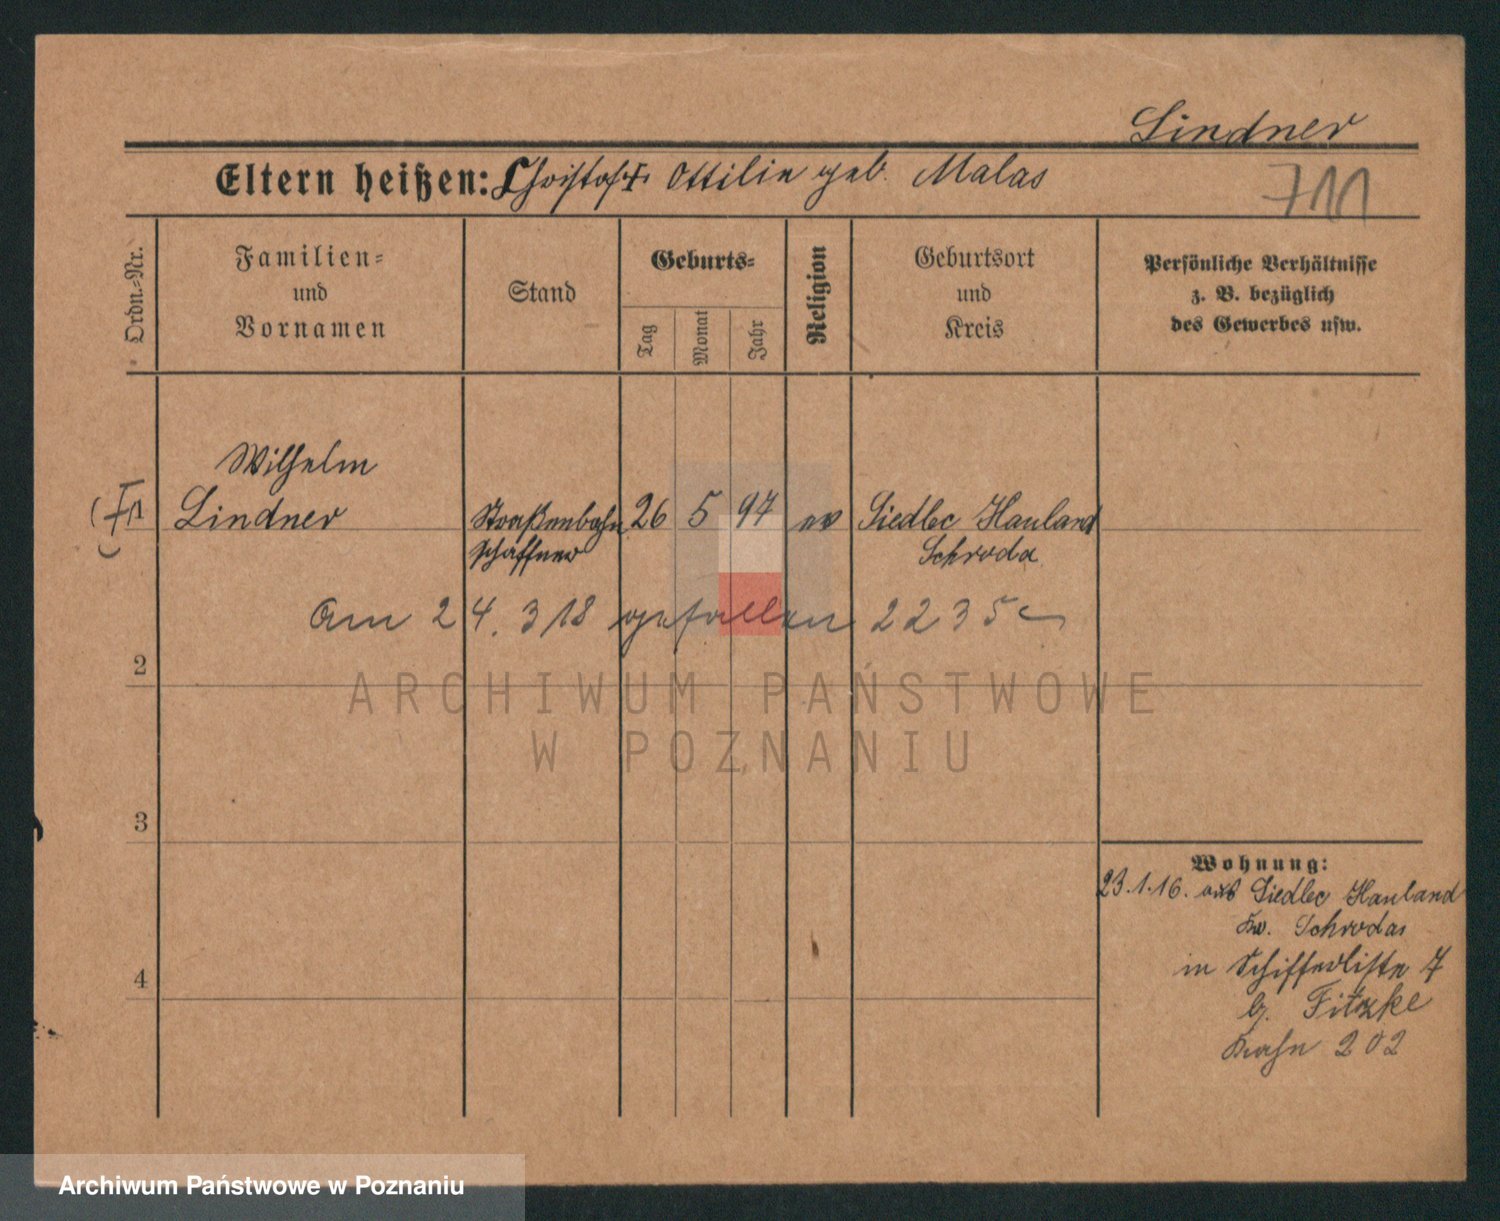 Lindner
Eltern heißen: Christof Ottilie geb. Malas
711
Ordn.-Nr.
Familien-
und
Vornamen
Stand
Geburts-
Tag
Monat
Jahr
Religion
Geburtsort
und
Kreis
Persönliche Verhältnisse
z. B. bezüglich
des Gewerbes usw.
Wilhelm
1 Lindner Straßenbahn 26 5 97 ev Siedlec Hauland
schaffner Schroda
Am 24. 3 18 gefallen 2235
2
ARCHIWUM PAŃSTWOWE
W POZNANIU
3
4
Wohnung:
23.1.16. aus Siedlec Hauland
Kr. Schroda
in Schifferliste 7
b. Fitzke
Kahn 202
Archiwum Państwowe w Poznaniu